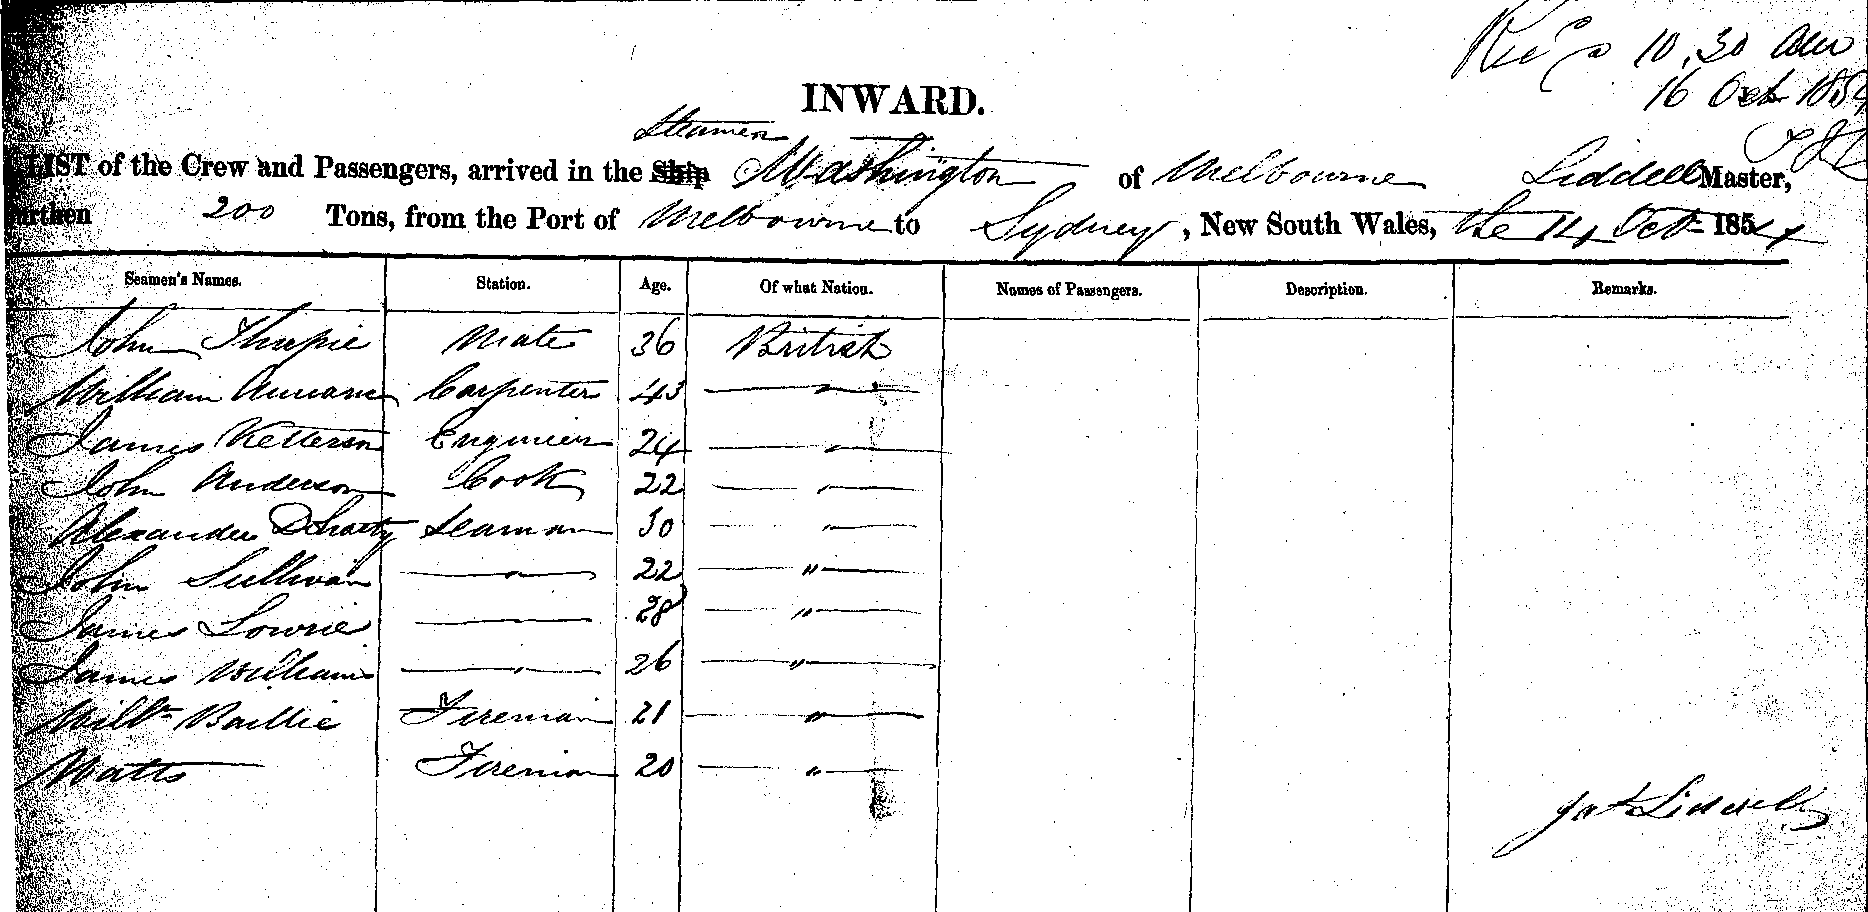 Rec'd 10.30 am
16 Oct 1854
INWARD.
Steamer
LIST of the Crew and Passengers, arrived in the Ship Washington of Melbourne Liddell Master,
Burthen 200 Tons, from the Port of Melbourne to Sydney, New South Wales, the 14 Oct 1854
Seamen's Names. Station. Age. Of what Nation. Names of Passengers. Description. Remarks.
John Mate 36 British
William Carpenter 43 "
James Ketterson Engineer 24 "
John Anderson Cook 22 "
Alexander Seaman 30 "
John Sullivan " 22 "
James Lowrie 28 "
James Williams " 26 "
Willm Baillie Fireman 21 "
Watts Fireman 20 "
Jas Liddell